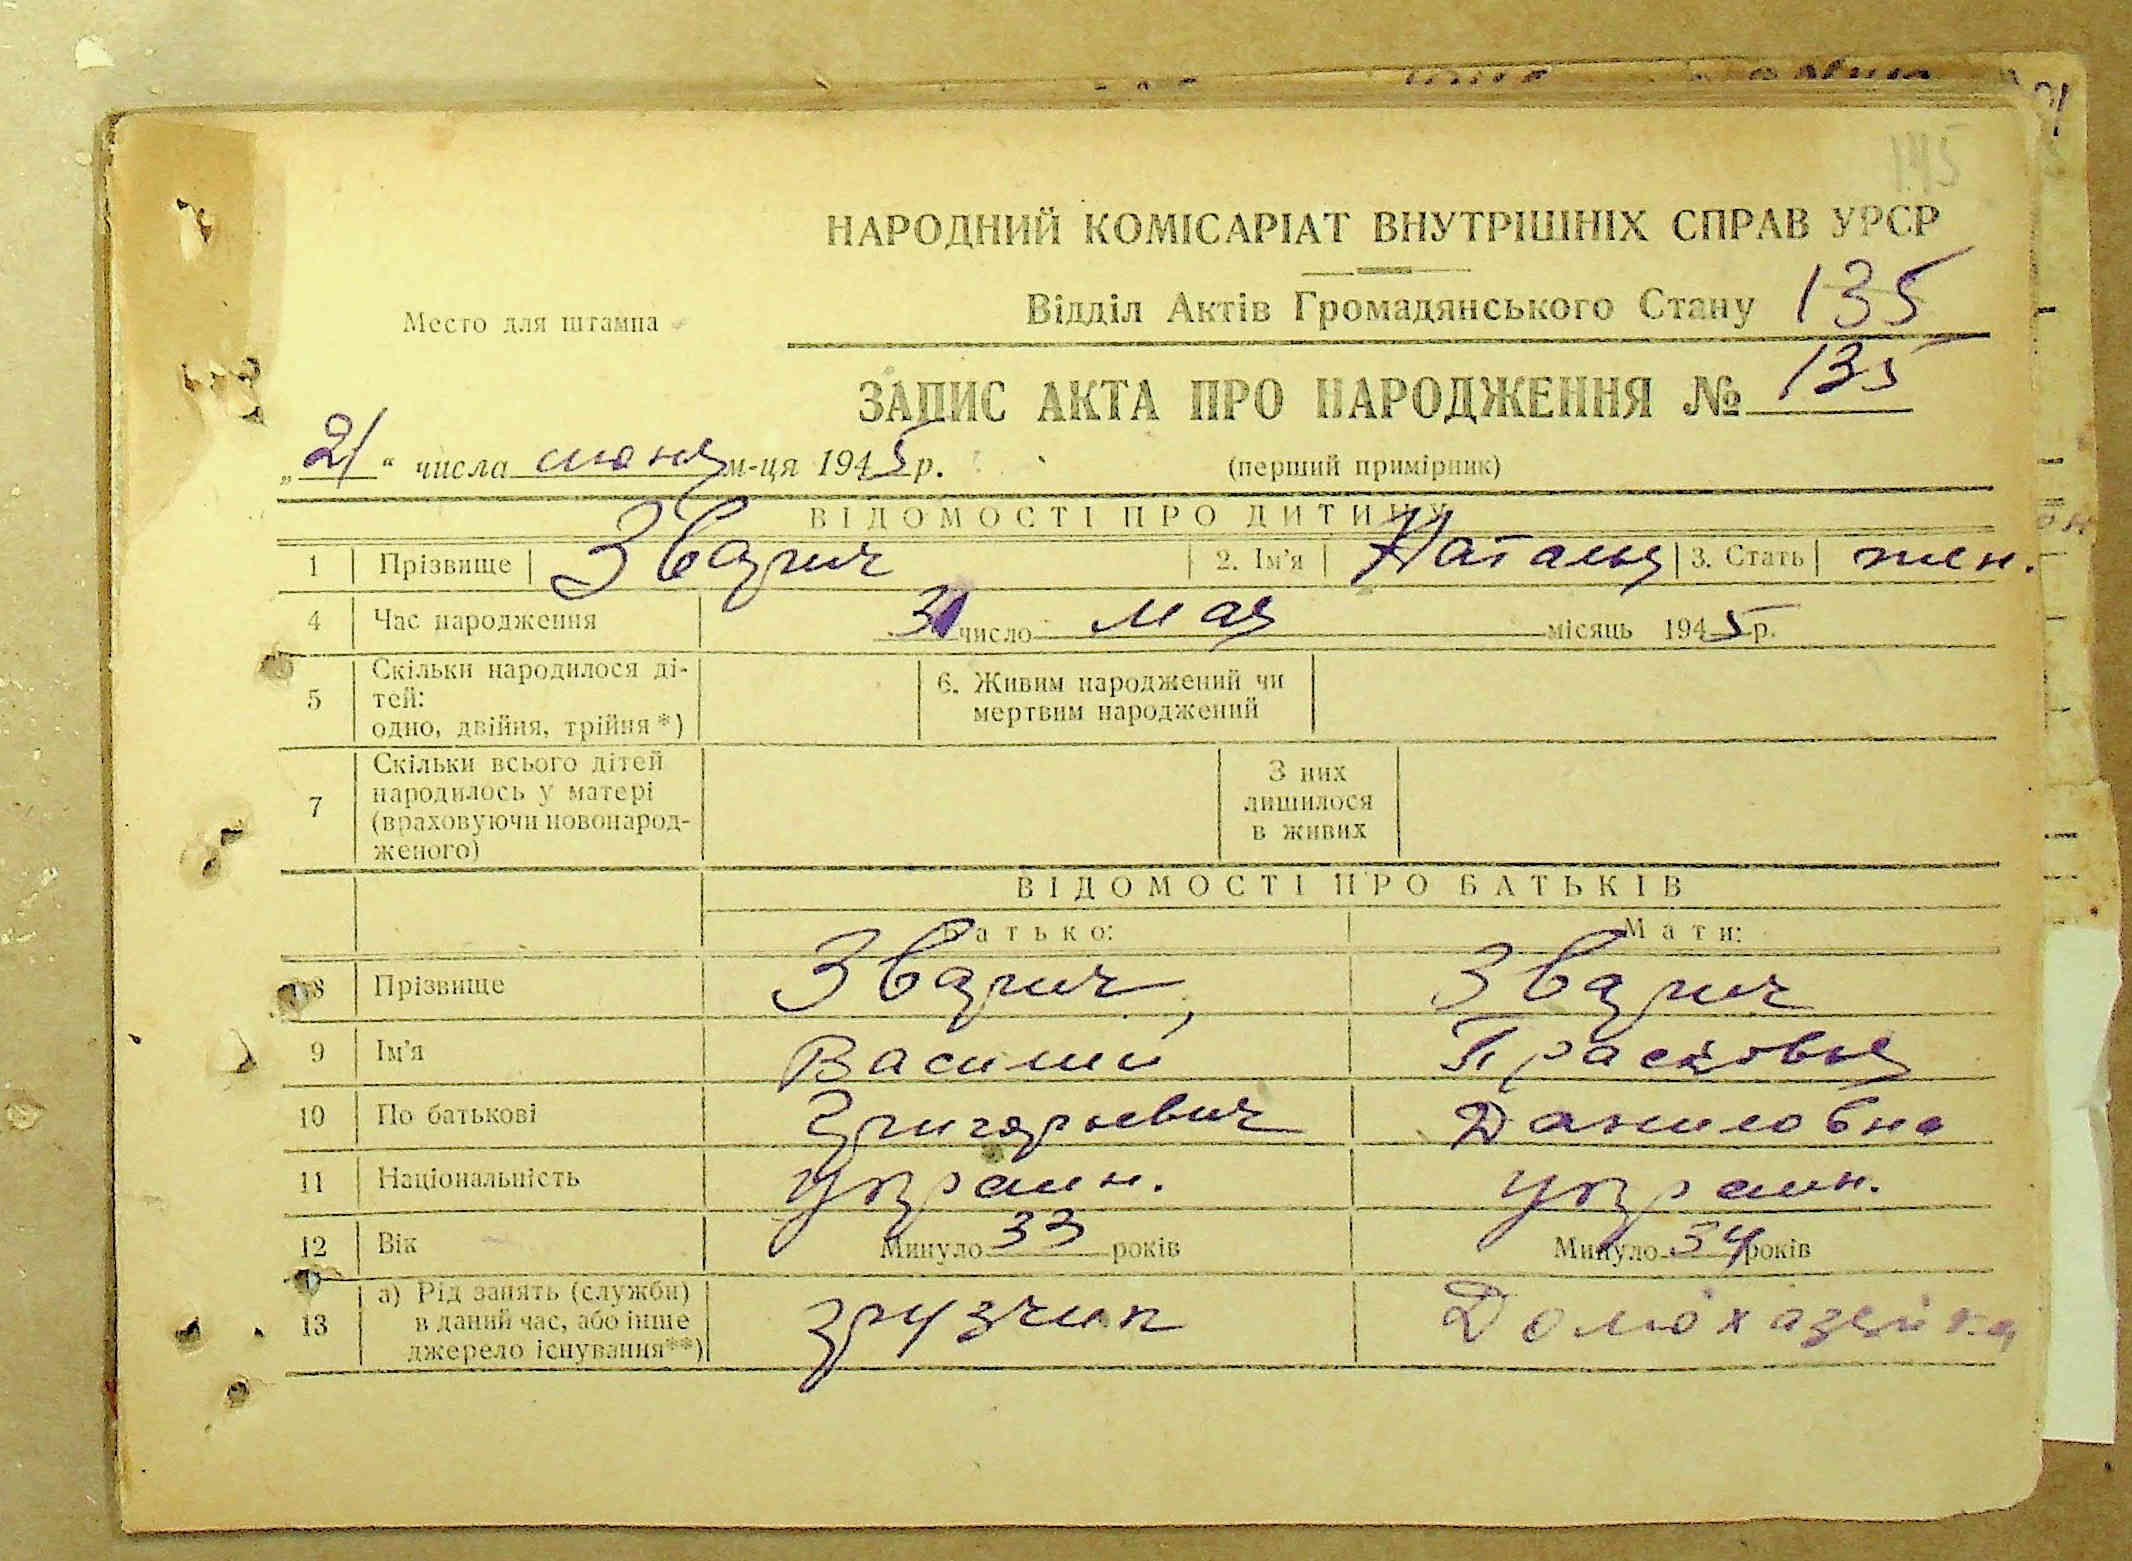 145
НАРОДНИЙ КОМІСАРІАТ ВНУТРІШНІХ СПРАВ УРСР
Место для штампа
Відділ Актів Громадянського Стану 135
ЗАПИС АКТА ПРО НАРОДЖЕННЯ № 135
„21“ числа июня м-ця 1945 р. (перший примірник)
ВІДОМОСТІ ПРО ДИТИНУ
1 Прізвище Зварич 2. Ім'я Наталья 3. Стать жен.
4 Час народження 31 число мая місяць 1945 р.
5 Скільки народилося ді-
тей:
одно, двійня, трійня *)
6. Живим народжений чи
мертвим народжений
7 Скільки всього дітей
народилось у матері
(враховуючи новонарод-
женого)
З них
лишилося
в живих
ВІДОМОСТІ ПРО БАТЬКІВ
Батько: Мати:
8 Прізвище Зварич, Зварич
9 Ім'я Василий Прасковья
10 По батькові Григорьевич Даниловна
11 Національність украин. украин.
12 Вік Минуло 33 років Минуло 34 років
13 а) Рід занять (служби)
в даний час, або інше
джерело існування**)
грузчик Домохазяйка